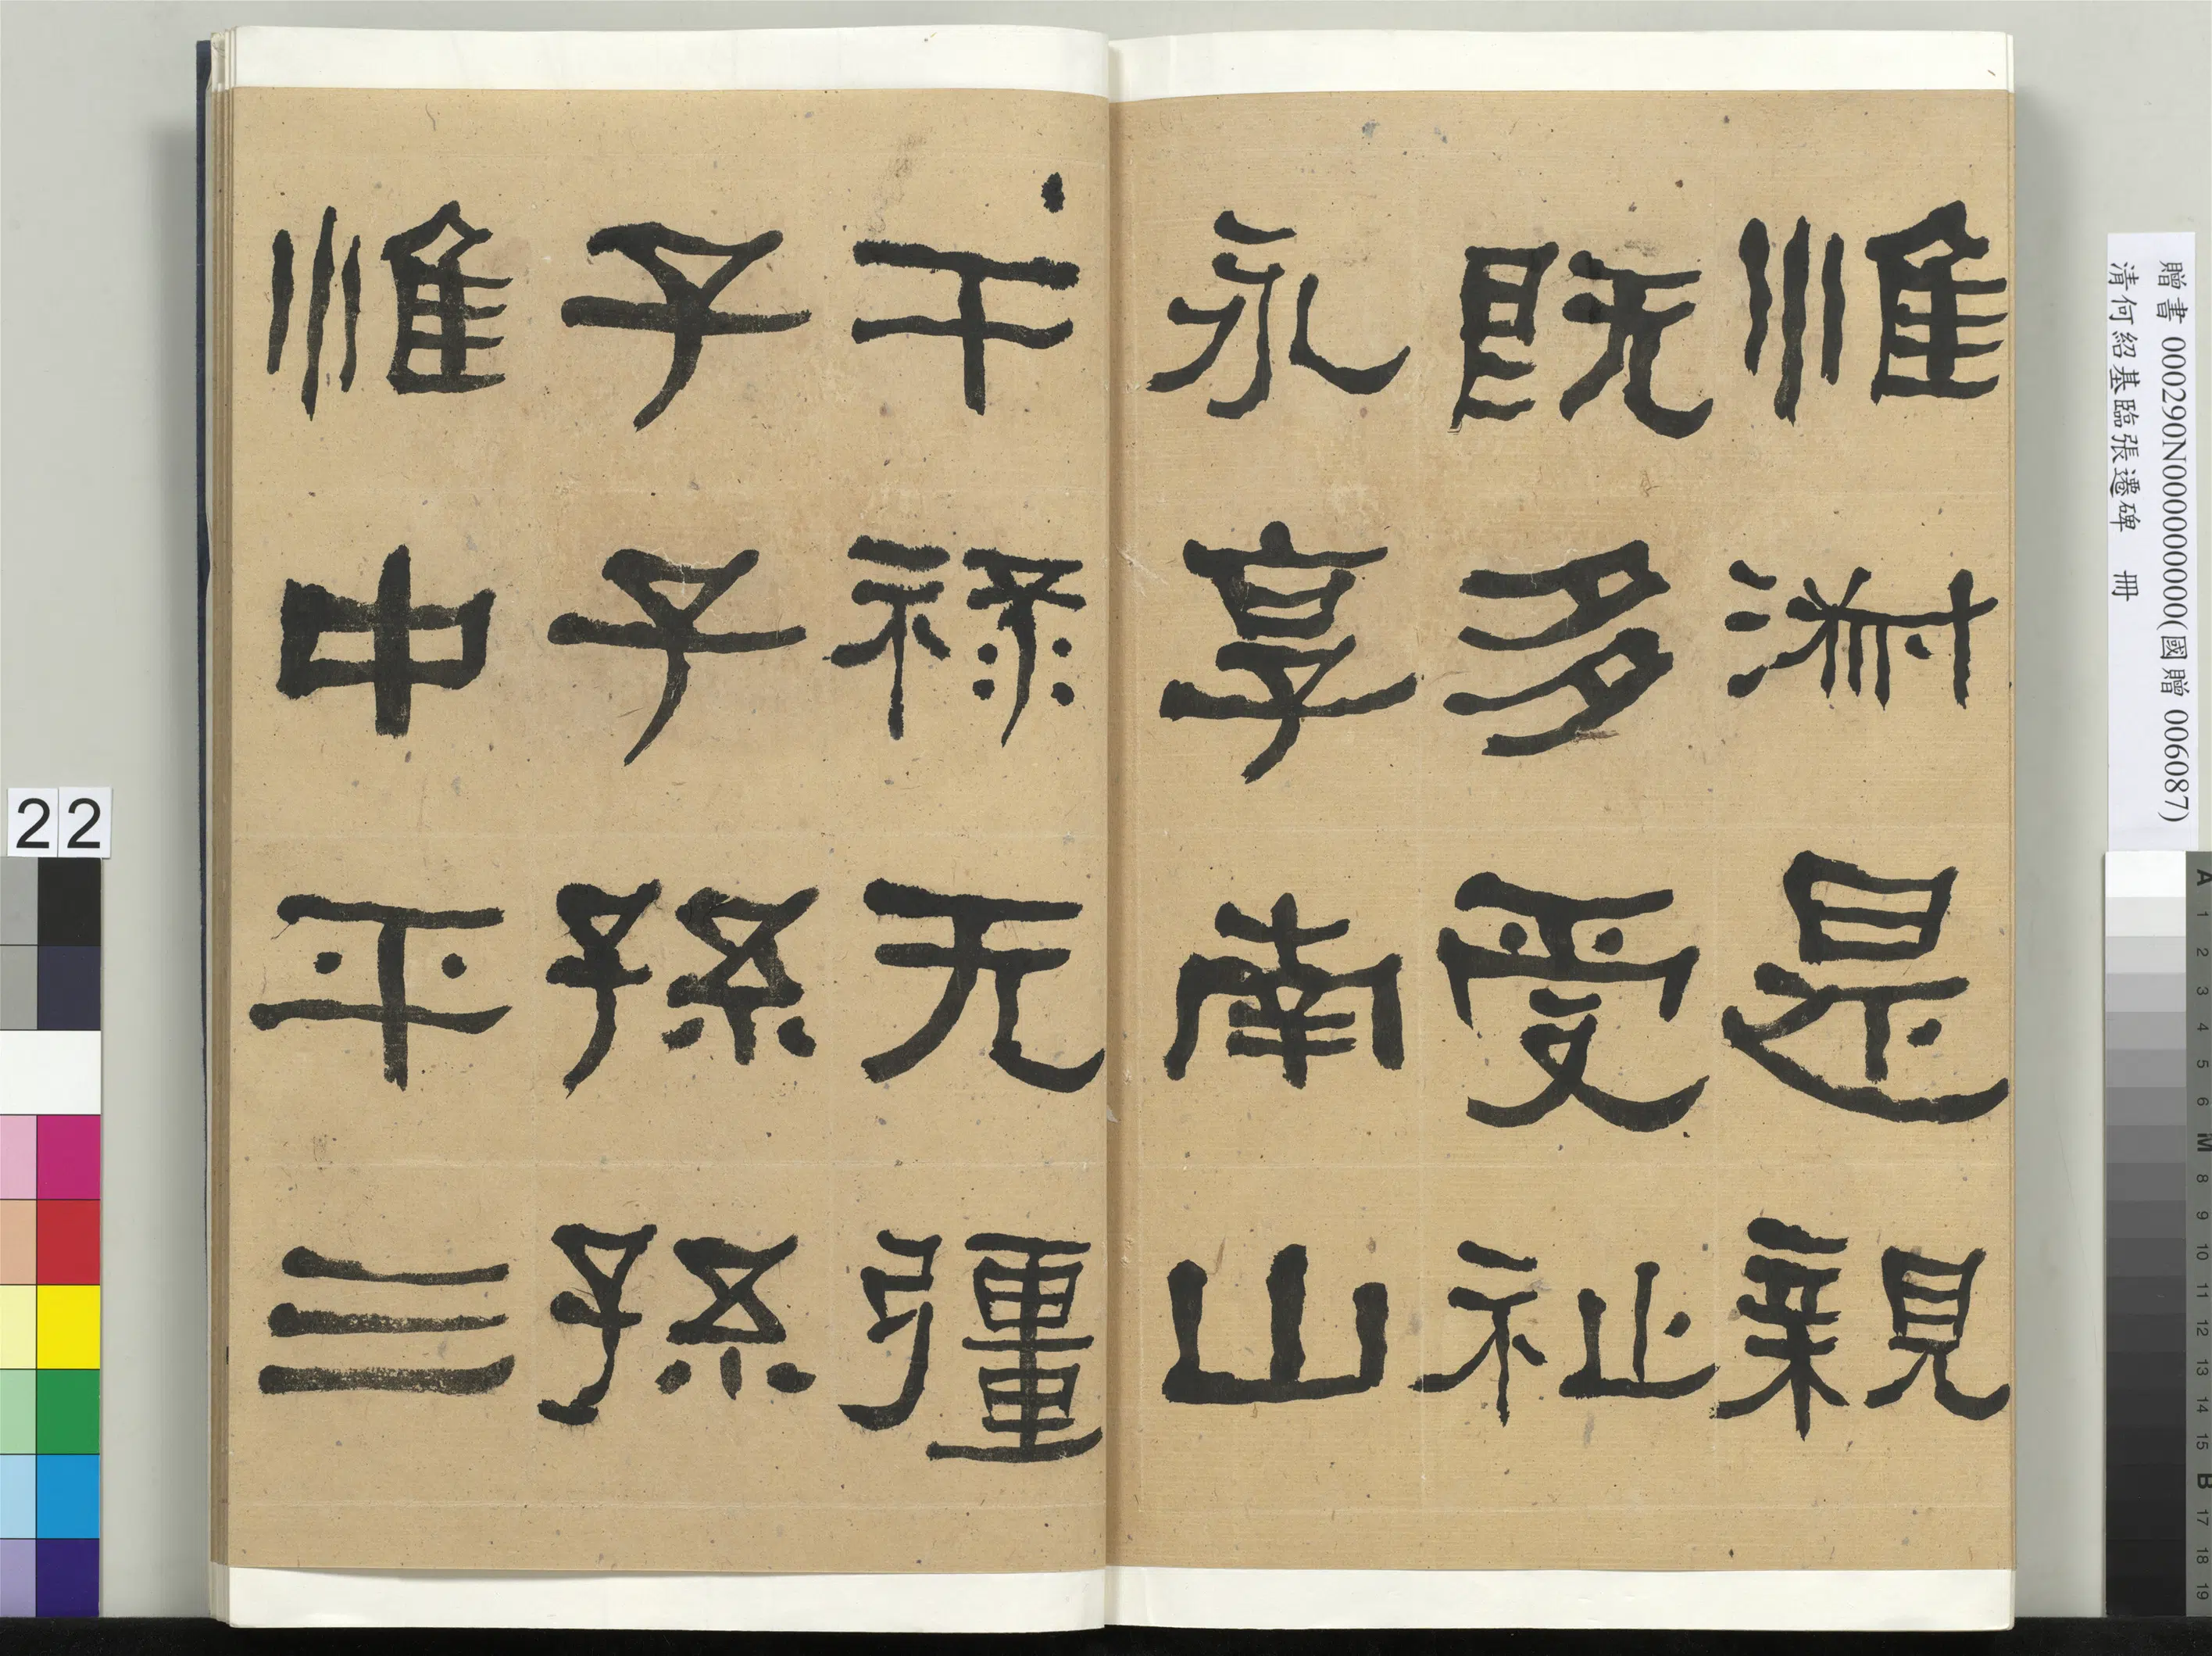 惟淑是親
既多受祉
永享南山
干祿无彊
子子孫孫
惟中平三
贈書 000290N000000000(國贈 006087)
清何紹基臨張遷碑 冊
22
A 1 2 3 4 5 6 M 8 9 10 11 12 13 14 15 B 17 18 19